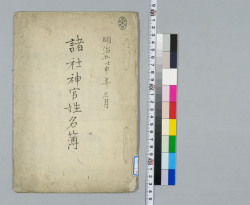 明治五壬申年三月
諸社神官姓名簿